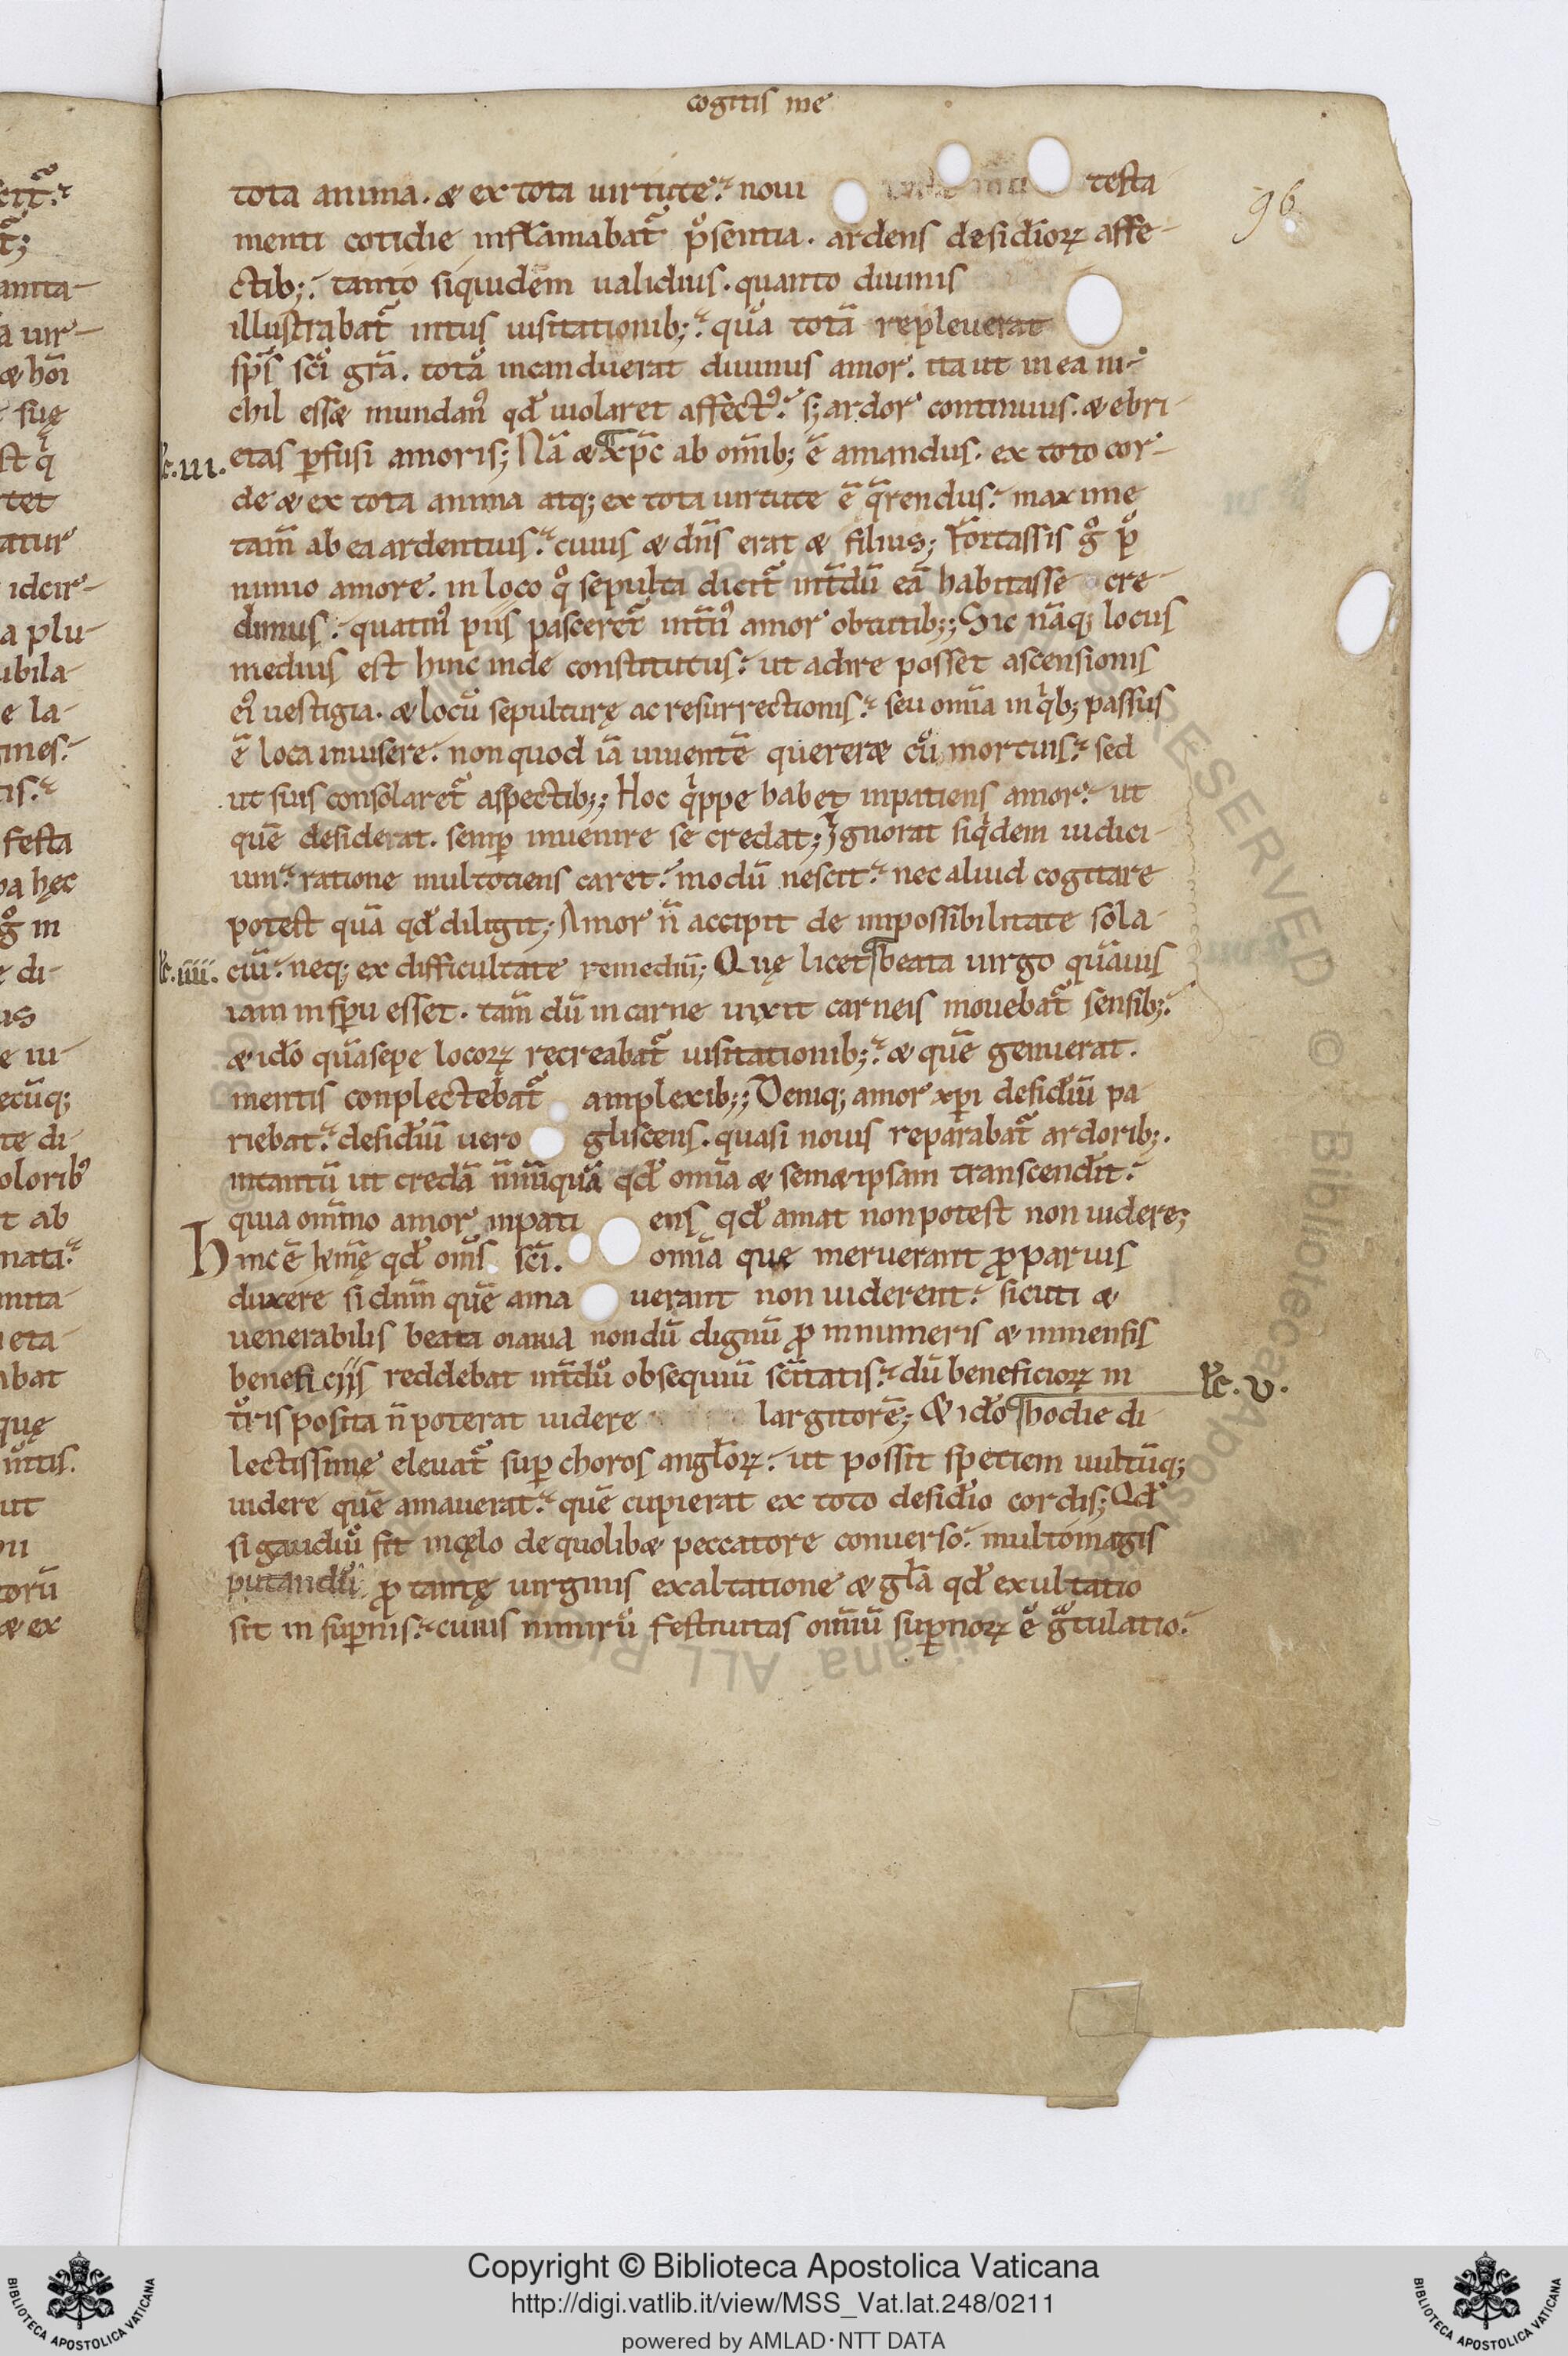 cogitis me
96
tota anima. & ex tota uirtute. noui testa
menti cotidie inflāmabat᷑ p̄sentia. ardens desidioꝝ affe-
ctib; tanto siquidem ualidius. quanto diuinis
illustrabat᷑ intus uisitationib; quā totā repleuerat
sp̄s sc̄i gr̄a. totā incanduerat diuinus amor. ita ut in ea ni-
chil ess& mundanꝰ qd̄ uiolaret affectꝰ. s; ardor continuus. & ebri-
lc̄.iii. etas ꝑfusi amoris; Nā & xp̄c ab om̄ib; ē amandus. ex toto cor-
de & ex tota anima atq; ex tota uirtute ē q̄rendus. maxime
tam̄ ab ea ardentius. cuius & dn̄s erat & filius; Fortassis g° p̄
nimio amore. in loco q° sepulta dicit᷑ int̄dū eā habitasse cre-
dimus. quatinꝰ piis pasceret᷑ int̄nꝰ amor obtutib; Sic nāq; locus
medius est hinc inde constitutus. ut adire posset ascensionis
eiꝰ uestigia. & locū sepulturę ac resurrectionis. seu om̄ia in qⁱb; passus
ē loca inuisere. non quod iā uiuentē querer& cū mortuis. sed
ut suis consolaret᷑ aspectib; Hoc qⁱppe habet inpatiens amor. ut
quē desiderat. semꝑ inuenire se credat; Ignorat siqⁱdem iudici-
um. ratione multotiens caret. modū nescit. nec aliud cogitare
potest quā qd̄ diligit; Amor n̄ accipit de impossibilitate sola-
lc̄.iiii. ciū. neq; ex difficultate remediū; Quę licet beata uirgo quāuis
iam in sp̄u esset. tam̄ dū in carne uixit carneis mouebat᷑ sensib;
& idō quāsepe locoꝝ recreabat᷑ uisitationib; & quē genuerat.
mentis conplectebat᷑ amplexib; Deniq; amor xp̄i desid̄iū pa-
riebat. desid̄iū uero gliscens. quasi nouis reparabat᷑ ardorib;.
intantū ut credā n̄nūquā qd̄ om̄ia & sem&ipsam transcend̄it.
quia om̄ino amor inpati ens qd̄ amat non potest non uidere;
Hinc ē qd̄ om̄s sc̄i. om̄ia que meruerant ꝓ paruis
duxere si dn̄m quē ama uerant non uiderent. sicuti &
uenerabilis beata maria nondū dignū ꝓ innumeris & inmensis
beneficiis reddebat int̄dū obsequiū sc̄itatis. dū beneficioꝝ in lc̄.v.
t̄ris posita n̄ poterat uidere largitorē; & idō hodie di-
lectissimę eleuat᷑ suꝑ choros angl̄oꝝ. ut possit spetiem uultūq;
uidere quē amauerat. quē cupierat ex toto desid̄io cordis; Qd̄
si gaudiū fit in cęlo de quolib& peccatore conuerso. multo magis
putandū ꝓ tantę uirginis exaltatione & gl̄a qd̄ exultatio
sit in suꝑnis. cuius nimirū festiuitas om̄iū suꝑnoꝝ ē gᵃtulatio.
Copyright © Biblioteca Apostolica Vaticana
http://digi.vatlib.it/view/MSS_Vat.lat.248/0211
powered by AMLAD·NTT DATA
BIBLIOTECA APOSTOLICA VATICANA
BIBLIOTECA APOSTOLICA VATICANA